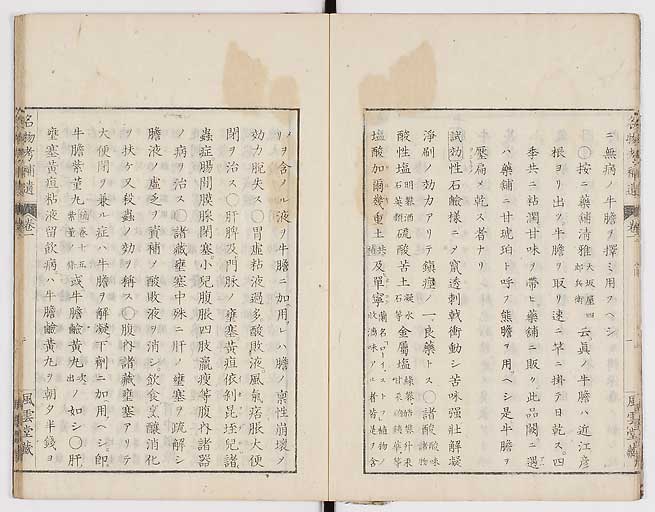 ニ無病ノ牛膽ヲ擇ミ用フヘシ
○按ニ藥舖清雅 大坂屋四郎兵衛 云眞ノ牛膽ハ近江彦
根ヨリ出ツ牛膽ヲ取リ速ニ竿ニ掛テ日乾ス四
季共ニ粘濶甘味ヲ帶ヒ藥舖ニ販ク此品閧ニ遇
ハ藥舖ニ甘琥珀ト呼フ熊膽ヲ用ヘシ是牛膽ヲ
壓扁メ乾ス者ナリ
試効性石鹸樣ニメ竄透刺戟衝動シ苦味强壯解凝
淨刷ノ効力アリテ鎭痙ノ一良藥トス○諸酸
酸性塩 明礬酒石英 硫酸苦土 凝水石等 金屬塩
塩酸加爾幾重土 及單寧
メヲ含ノル液ヲ牛膽ニ加用レハ膽ノ稟性崩壞メ
効力脫失ス○胃虚粘液過多酸敗液風氣痞脹大便
閉ヲ治ス○肝脾及門脉ノ壅塞黃疸依剝昆垤兒諸
蟲症腸間膜腺閉塞小兒腹脹四肢羸瘦等腹內諸器
ノ病ヲ治ス○諸藏壅塞中殊ニ肝ノ壅塞ヲ疏解シ
膽液ノ虚乏ヲ資補メ酸敗液ヲ消シ飲食烹釀消化
ヲ扶ケ又殺蟲ノ効ヲ稱ス○腹內諸藏壅塞アリテ
大便閉ヲ兼ル症ハ牛膽ヲ解凝下劑ニ加用ヘシ卽
牛膽紫菫丸 或牛膽鹼黃丸 出 ノ如シ○肝
壅塞黃疸粘液留飲病ハ牛膽鹼黃丸ヲ朝夕半錢ヲ
名物考補遺 卷一
風雲堂藏
名物考補遺 卷一
風雲堂藏